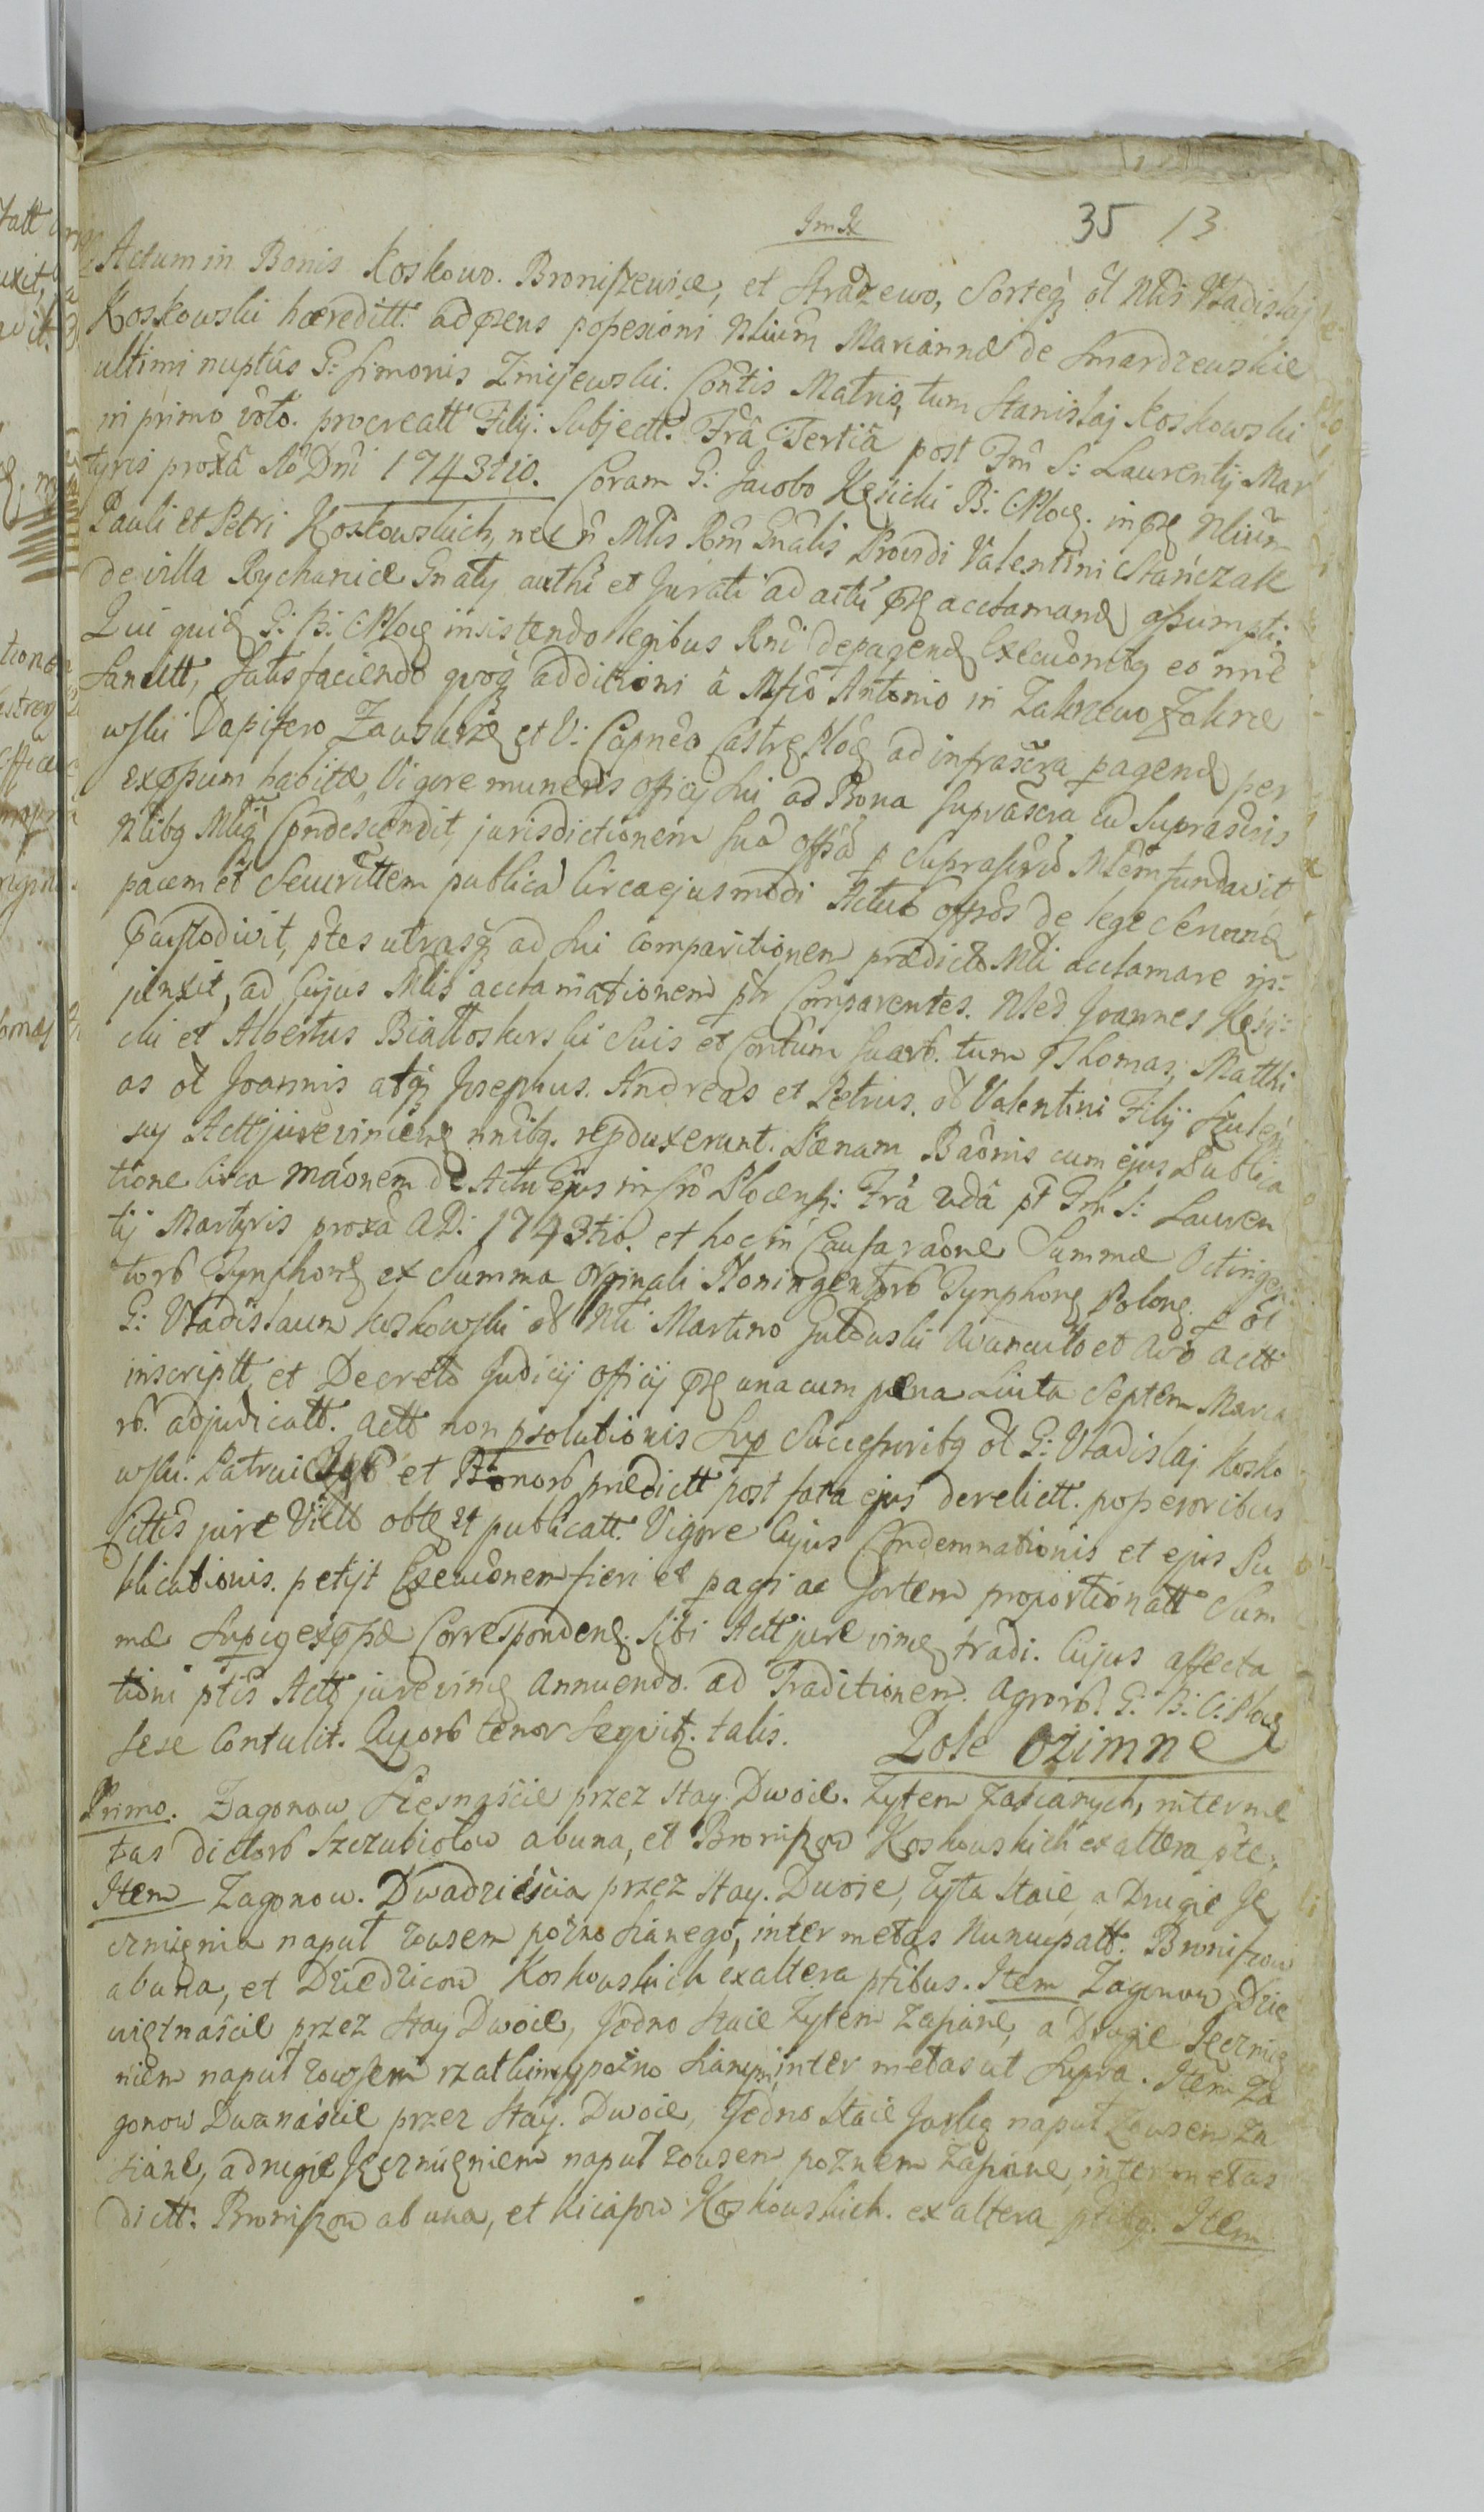 35 13
Actum in Bonis Koskowo. Broniszewice, et Strazewo, Sorteq ol Nlis Vladislaj
Koskowski hæreditt. ad præns possesioni Nlium Mariannæ de Smardzewskie
ultimi nuptûs G: Simonis Zmijewski. Contis Matris, tum Stanislaj Koskowski
in primo vôto. procreatt Filij. Subjectt. Frâ Tertiâ post Fm S: Laurentij Mar
tyris proxâ Aô Dni 1743tio. Coram G: Jacobo Kęsicki B: C: Ploc. in Nlium
Pauli et Petri Koskowskich, nec n Mlis Rm Gnâlis Providi Valentini Stańczak
de villa Rychanice Gnatij authi et Jurati ad actû acclamand assumpti.
Qui quid G: B: C: Ploc insistendo legibus Rni de pagend Executionibq eo nnê
Sancitt, Satisfaciendo quoq additioni â Mfco Antonio in Zakrzewo Zakrze
wski Dapifero Zawskrz et V: Capneo Castr. Ploc ad infrascra pagend per
expssum habitæ, Vigore muneris officij sui ad Bona Suprascra cu Suprascris
Nlibq Mliq Condescendit, jurisdictionem suâ offsâ p Suprascrid Mlêm fundavit
pacem et Securittem publicâ circa ejusmodi Actus offsôs de lege Servand
Custodivit, ptes utrasq ad sui comparitionem prædicto Mli acclamare in=
junxit, ad Cujus Mlis acclamationem ptr Comparentes. Nles Joannes Kęsi=
cki et Albertus Białłoskurski Suis et Contum Suarb. tum Thomas, Matthi
as ol Joannis atq Josephus. Andreas et Petrus. ol Valentini Filij
Actt jurevincen nnibq. repduxerunt. Pænam Baônis cum ejus Publica
tione circa Mâonem de Actu Ejus in frô Plocensi Frâ 2dâ pt Fm S: Lauren
tij Martyris proxâ A D: 1743tio. et hoc in Causa raône Summæ Octingen
torb Tynphon ex Summa Orginali Noningentorb Tynphon Polon. p ol
G: Vladislaum Koskowski ol Nli Martino Gulduski Avunculo et Avo actt
inscriptt, et Decreto Judicij officij una cum pæna Luita Septem Marca
rb. adjudicatt. actt non psolutionis Sup Successoribq ol G: Vladislaj Kosko
wski. Patrui et Bonorb prædictt post fata ejus derelictt. possesoribus
cittis jure Victt obtt et publicatt. Vigore Cujus Condemnationis et ejus Pu
blicationis. petijt Executionem fieri et pagi ac Sortem proportionatt Sum
mæ Supiq expssæ Correspondend. Sibi Actt jure vinc tradi. Cujus affecta
tioni ptis Actt jurevinc Annuendo. ad Traditionem. Agrorb. G: B: C: Ploc
sese Contulit. Quorb tenor Sequitr. talis. Pole Ozimne
Primo. Zagonow Szesnaście przez Stay Dwoie. Zytem Zasianych, inter me
tas dictorb Szczubiołow ab una, et Broniszow Koskowskich ex altera pte.
Item Zagonow. Dwadzieścia przez Stay. Dwoie, Zyta Staie, a Drugie Ję
czmięnia naput zowsem pożno Sianego, inter metas Nuncupatt. Broniszow
ab una, et Dziedzicow Koskowskich ex altera ptibus. Item Zagonow Dzie
więtnaście przez Stay Dwoie, Jedno Staie Zytem Zasiane, a Drugie Jęczmię
niem naput zowsem rzatkim pożno Sianym, inter metas ut Supra. Item Za
gonow Dwanaście przez Stay. Dwoie, Jedno Staie Jarką naput Zowsem Za
siane, a drugie Jęczmięniem naput zowsem pożnem Zasiane, inter metas
dictt. Broniszow ab una, et Kicasow Koskowskich. ex altera ptibq. Item